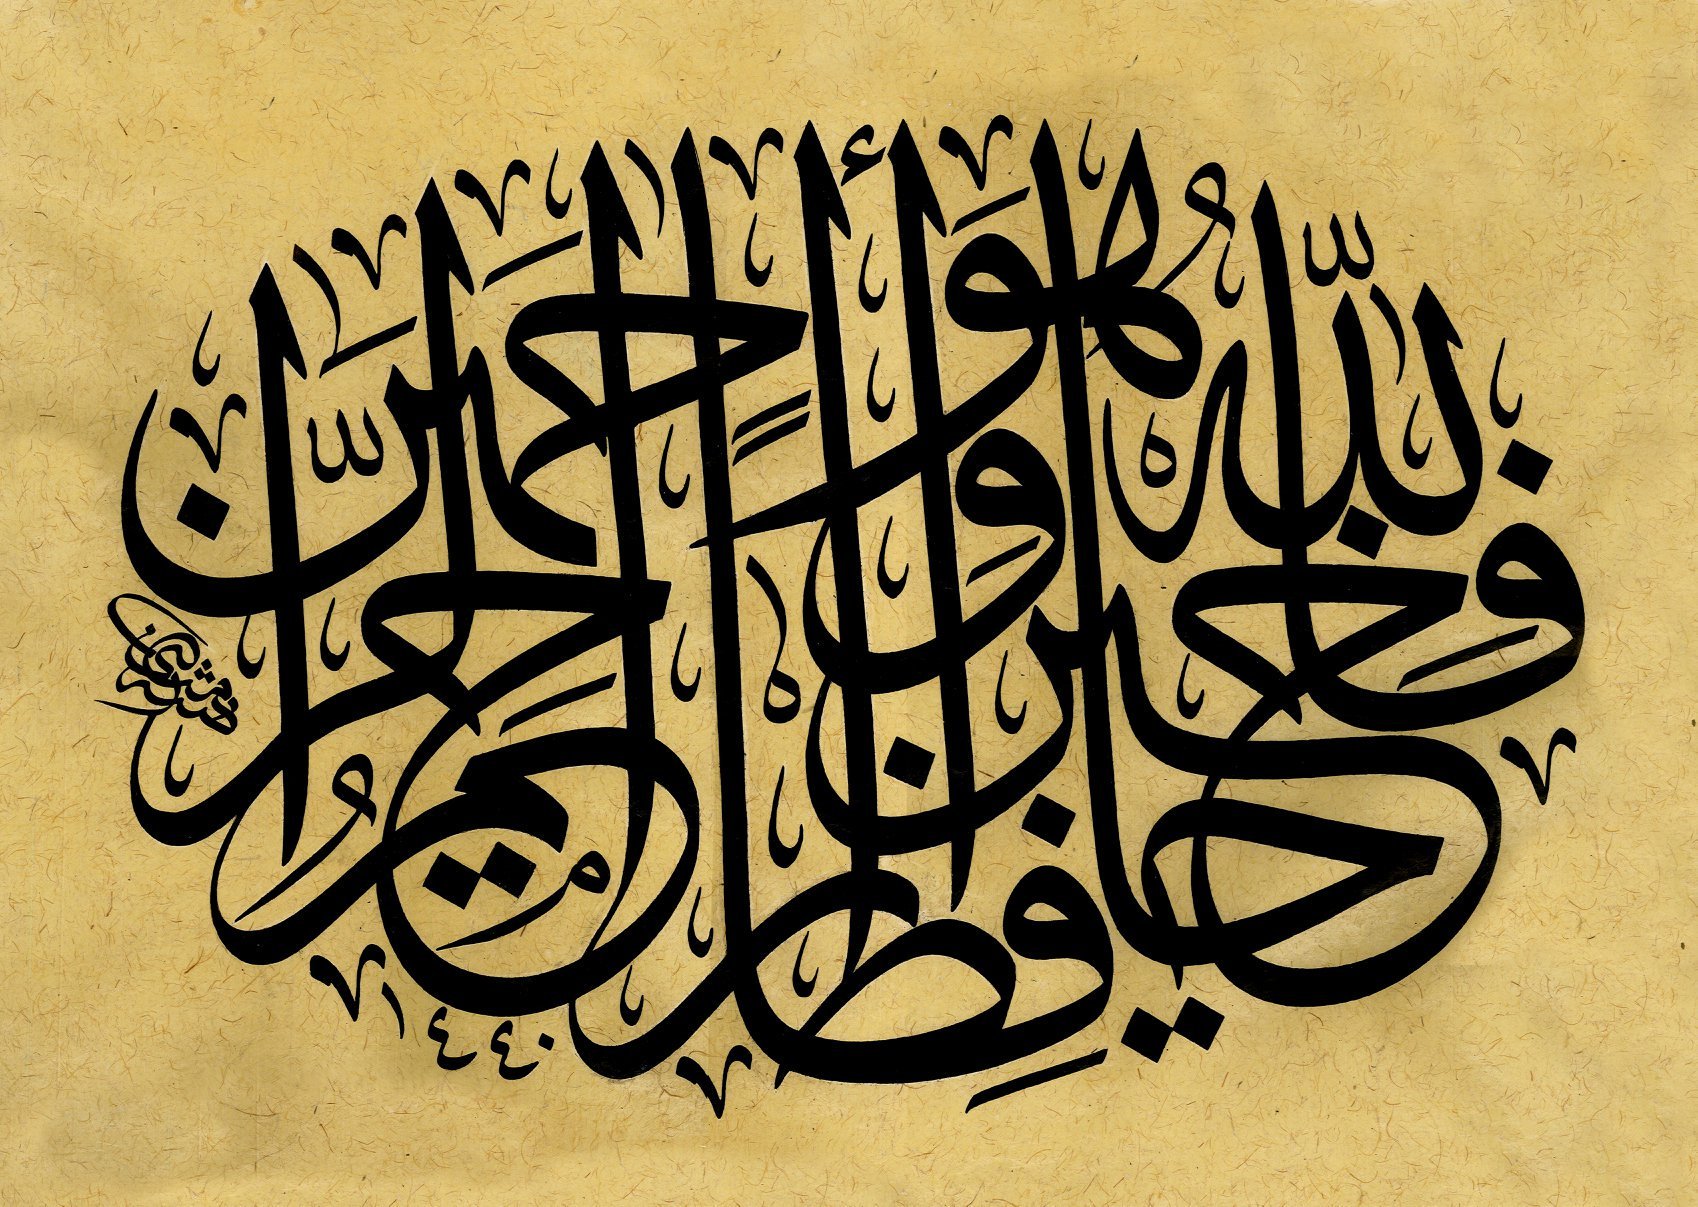 فالله خير حافظا وهو أرحم الراحمين
١٤٤٠